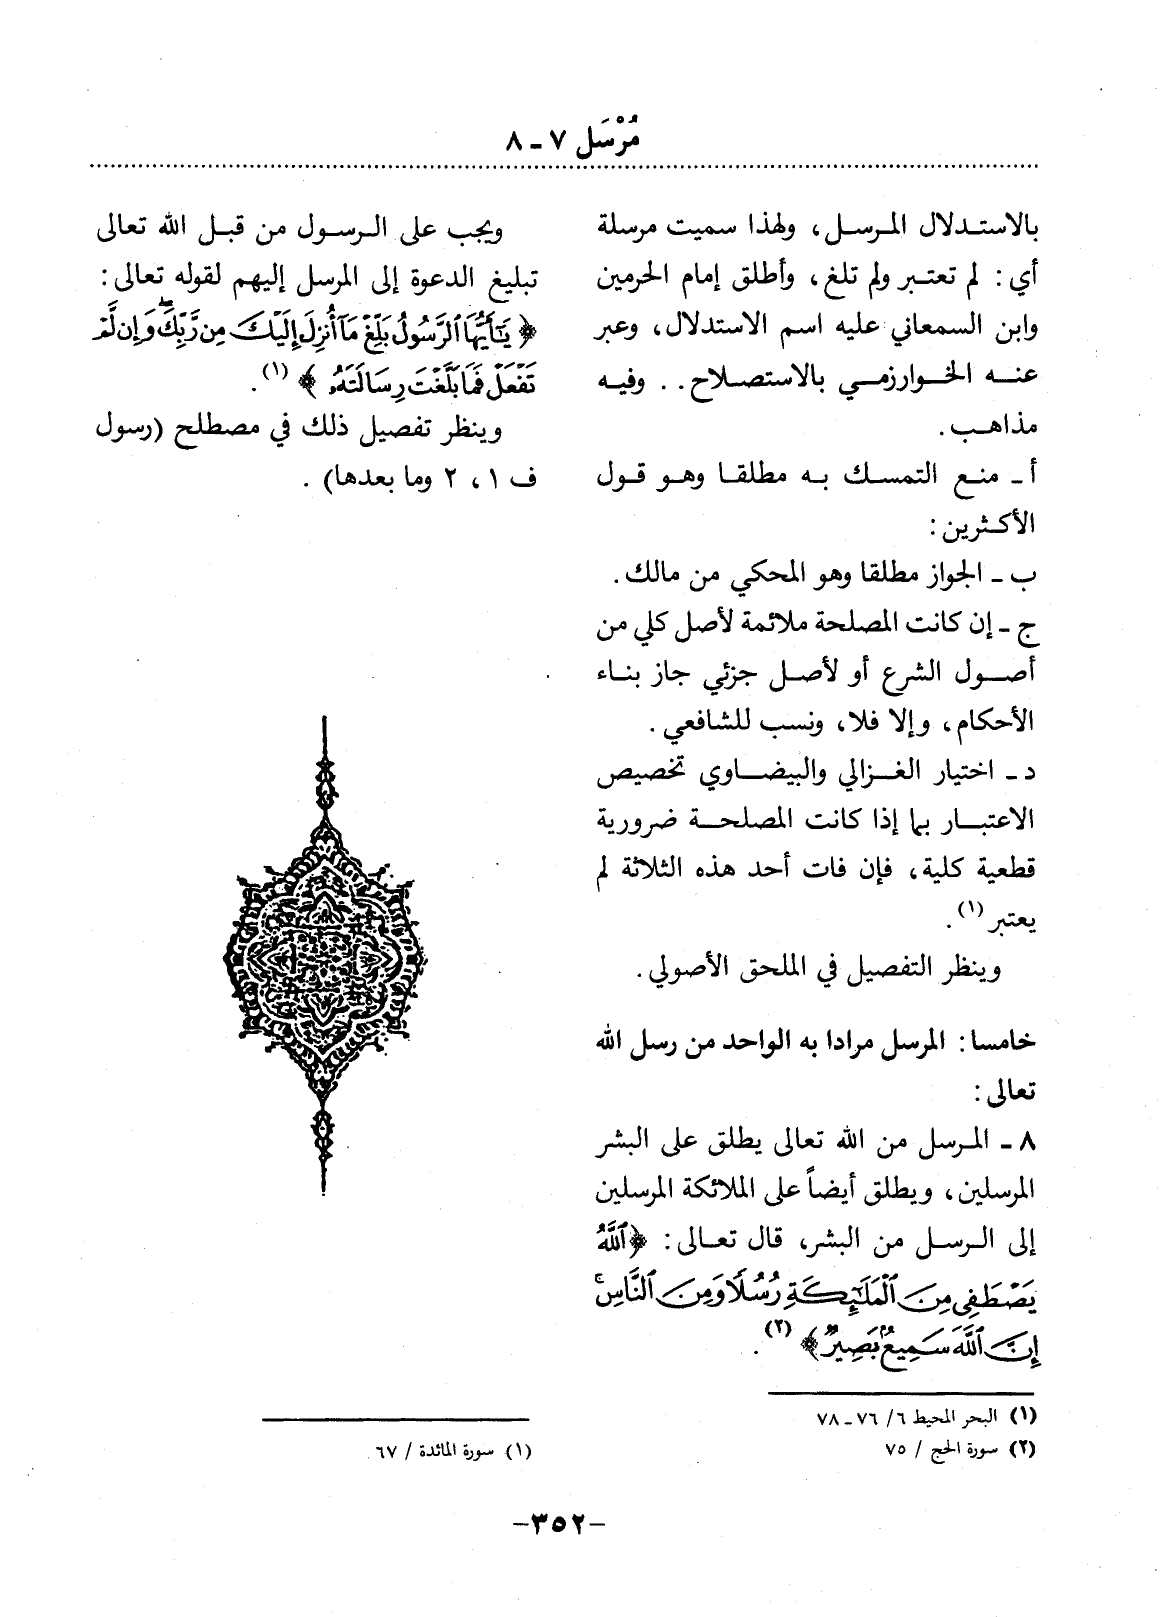 مُرْسَل ٧ ـ ٨
بالاستدلال المرسل، ولهذا سميت مرسلة
أي: لم تعتبر ولم تلغ، وأطلق إمام الحرمين
وابن السمعاني عليه اسم الاستدلال، وعبر
عنه الخوارزمي بالاستصلاح.. وفيه
مذاهب.
أ ـ منع التمسك به مطلقا وهو قول
الأكثرين:
ب ـ الجواز مطلقا وهو المحكي من مالك.
ج ـ إن كانت المصلحة ملائمة لأصل كلي من
أصول الشرع أو لأصل جزئي جاز بناء
الأحكام، وإلا فلا، ونسب للشافعي.
د ـ اختيار الغزالي والبيضاوي تخصيص
الاعتبار بما إذا كانت المصلحة ضرورية
قطعية كلية، فإن فات أحد هذه الثلاثة لم
يعتبر (١).
وينظر التفصيل في الملحق الأصولي.
خامسا: المرسل مرادا به الواحد من رسل الله
تعالى:
٨ ـ المرسل من الله تعالى يطلق على البشر
المرسلين، ويطلق أيضاً على الملائكة المرسلين
إلى الرسل من البشر، قال تعالى: ﴿ٱللَّهُ
يَصْطَفِى مِنَ ٱلْمَلَـٰٓئِكَةِ رُسُلًا وَمِنَ ٱلنَّاسِ ۚ
إِنَّ ٱللَّهَ سَمِيعٌۢ بَصِيرٌ﴾ (٢).
(١) البحر المحيط ٦/ ٧٦ ـ ٧٨
(٢) سورة الحج / ٧٥
ويجب على الرسول من قبل الله تعالى
تبليغ الدعوة إلى المرسل إليهم لقوله تعالى:
﴿يَـٰٓأَيُّهَا ٱلرَّسُولُ بَلِّغْ مَآ أُنزِلَ إِلَيْكَ مِن رَّبِّكَ ۖ وَإِن لَّمْ
تَفْعَلْ فَمَا بَلَّغْتَ رِسَالَتَهُۥ﴾ (١).
وينظر تفصيل ذلك في مصطلح (رسول
ف ١، ٢ وما بعدها).
(١) سورة المائدة / ٦٧
-٣٥٢-